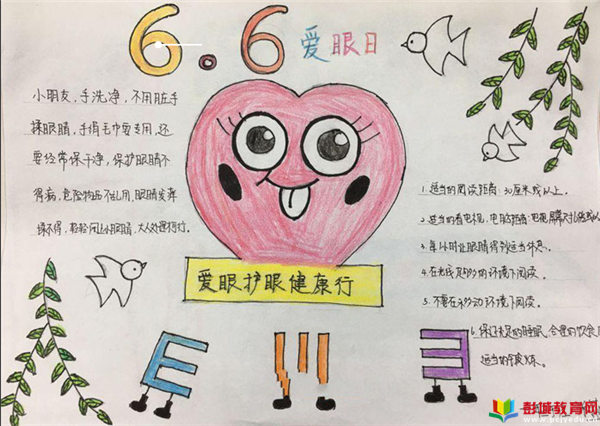 6.6 爱眼日
小朋友,手洗净,不用脏手
揉眼睛,手绢毛巾要专用,还
要经常保干净,保护眼睛不
得病,危险物品不乱用,眼睛发痒
揉不得,轻轻闭上眼睛,大人处理
1.适当的阅读距离:30厘米或以上。
2.适当的看电视,电脑距离:电视屏幕对
3.每小时让眼睛得到适当休息。
4.在光线足够的环境下阅读。
5.不要在移动环境下阅读。
6.保证充足的睡眠、合理的饮食
适当的锻炼。
爱眼护眼健康行
E M E
彭城教育网
www.pcjyedu.cn